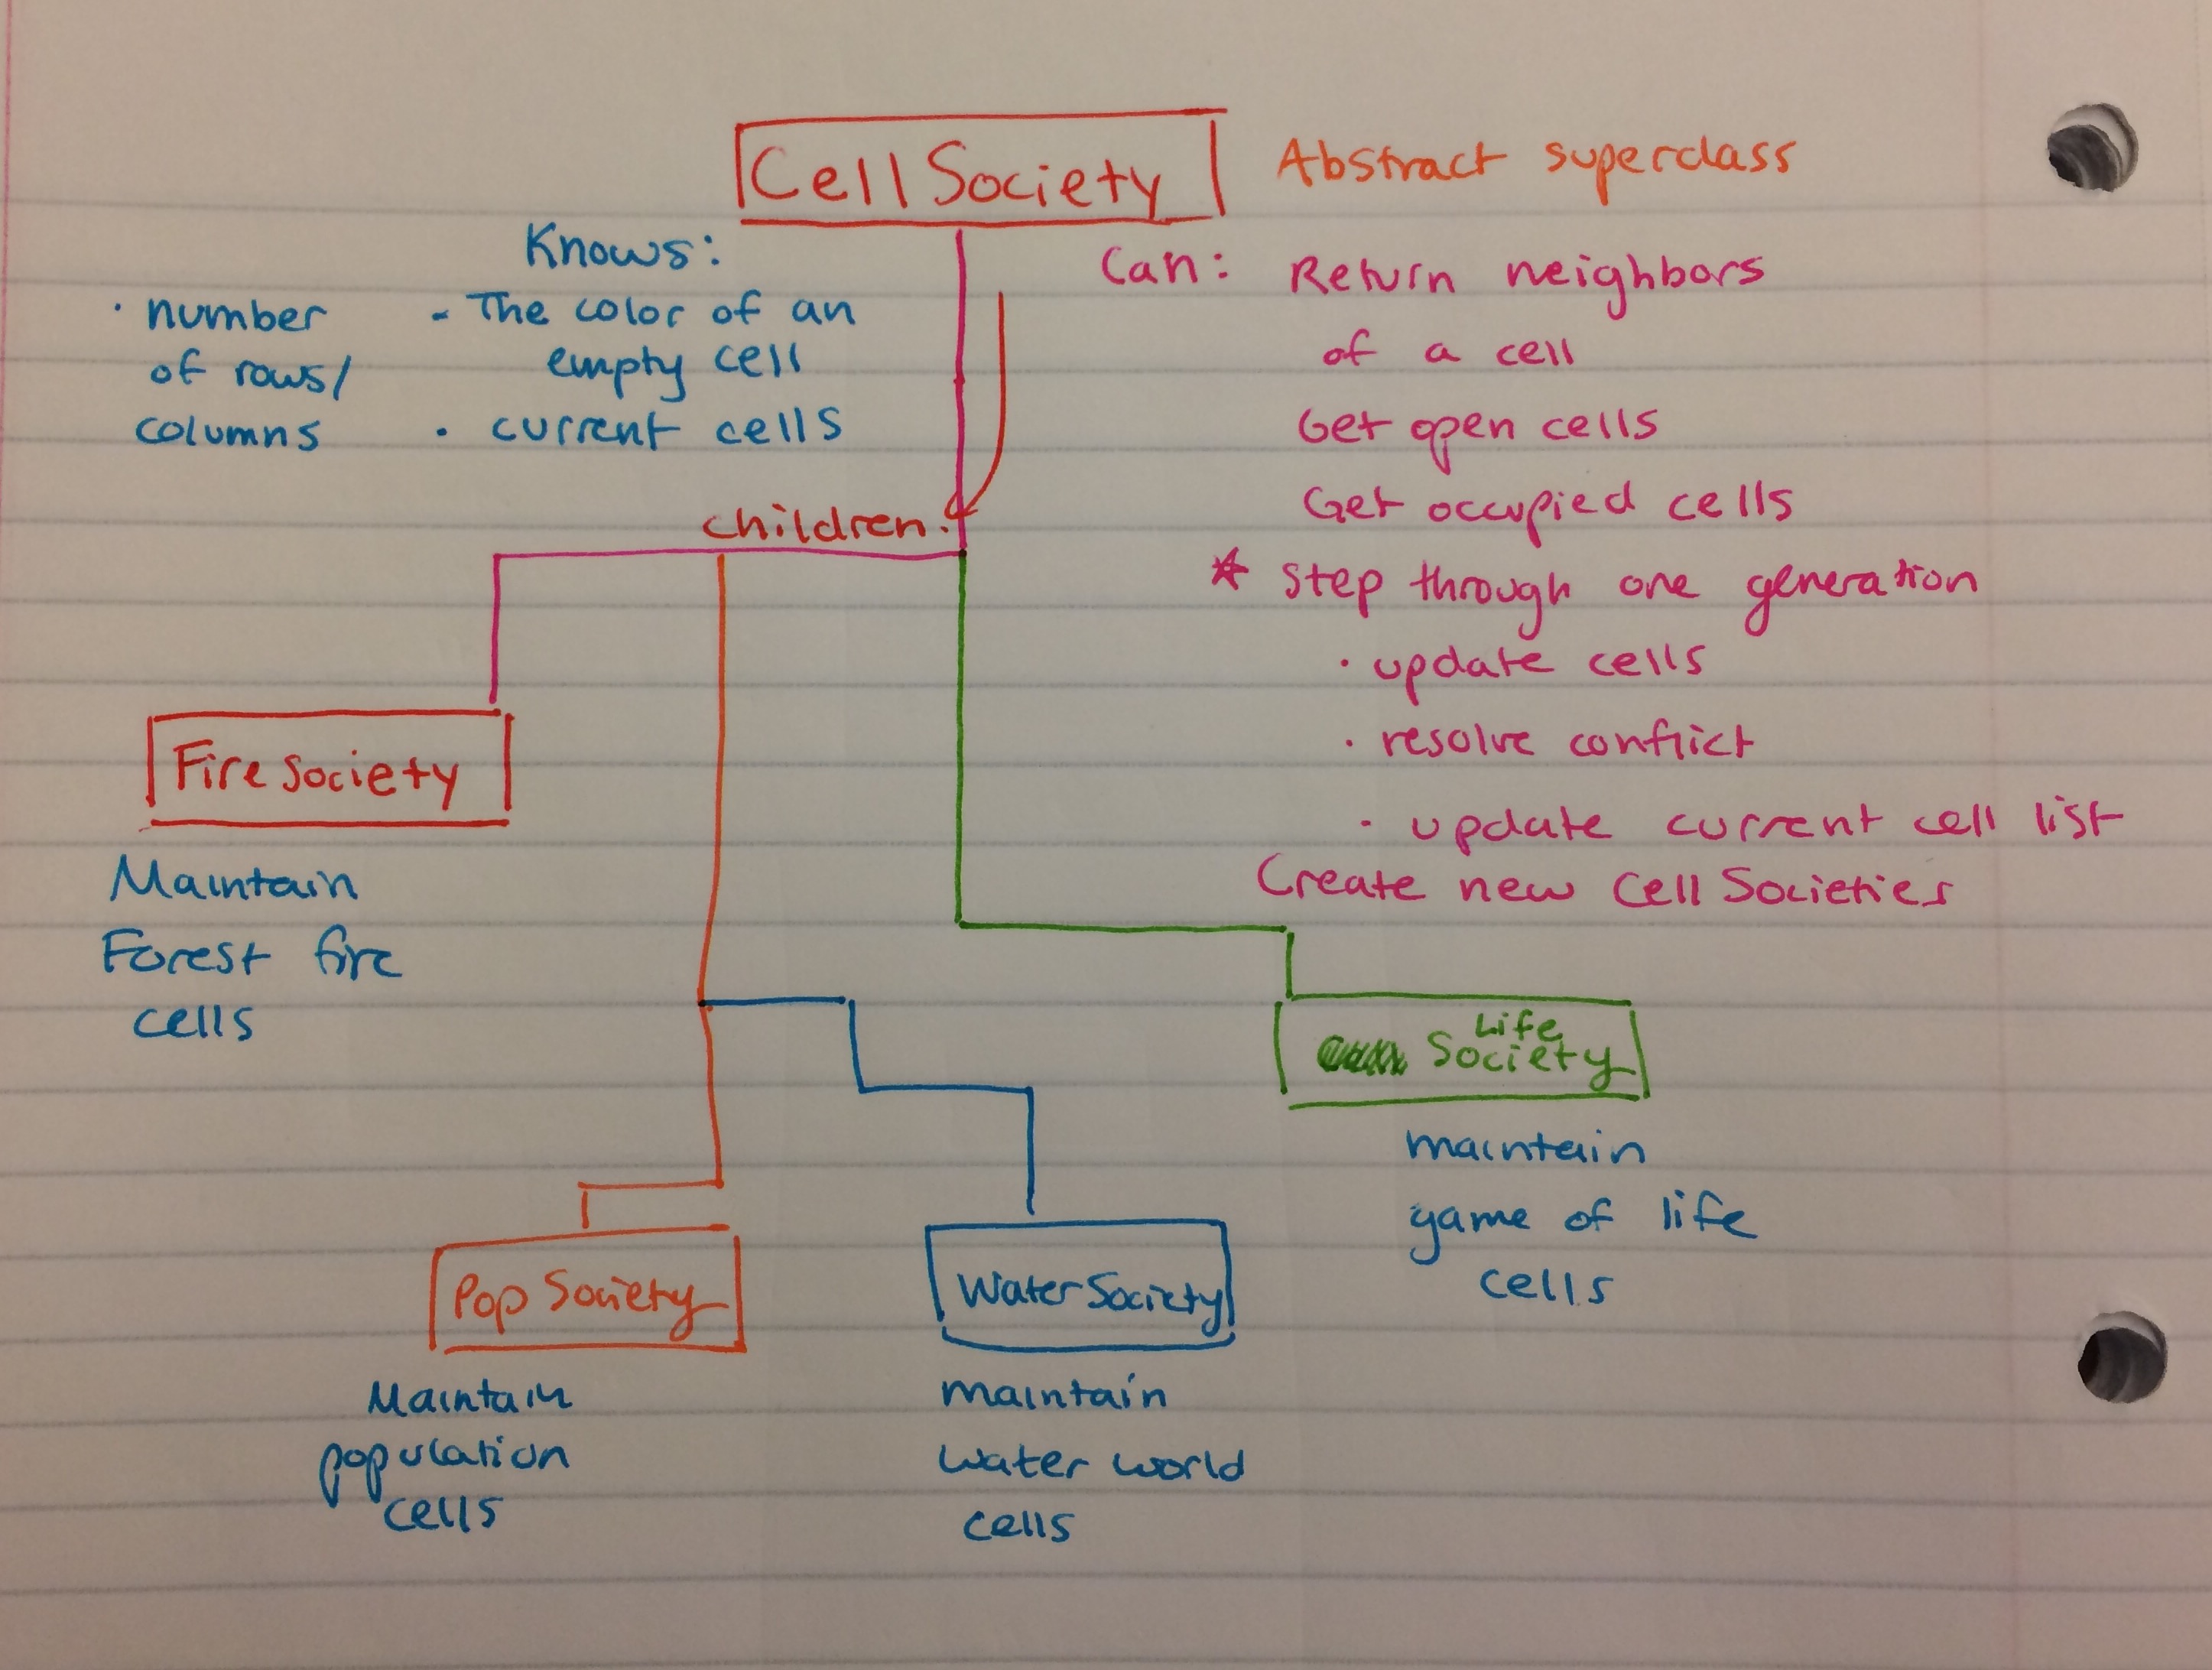 Cell Society
Abstract superclass
Knows:
· number
of rows/
columns
- The color of an
empty cell
· current cells
Can: Return neighbors
of a cell
Get open cells
Get occupied cells
* step through one generation
· update cells
· resolve conflict
· update current cell list
Create new Cell Societies
children:
Fire Society
Maintain
Forest fire
cells
Life
Society
maintain
game of life
cells
Pop Society
Maintain
population
cells
Water Society
maintain
water world
cells